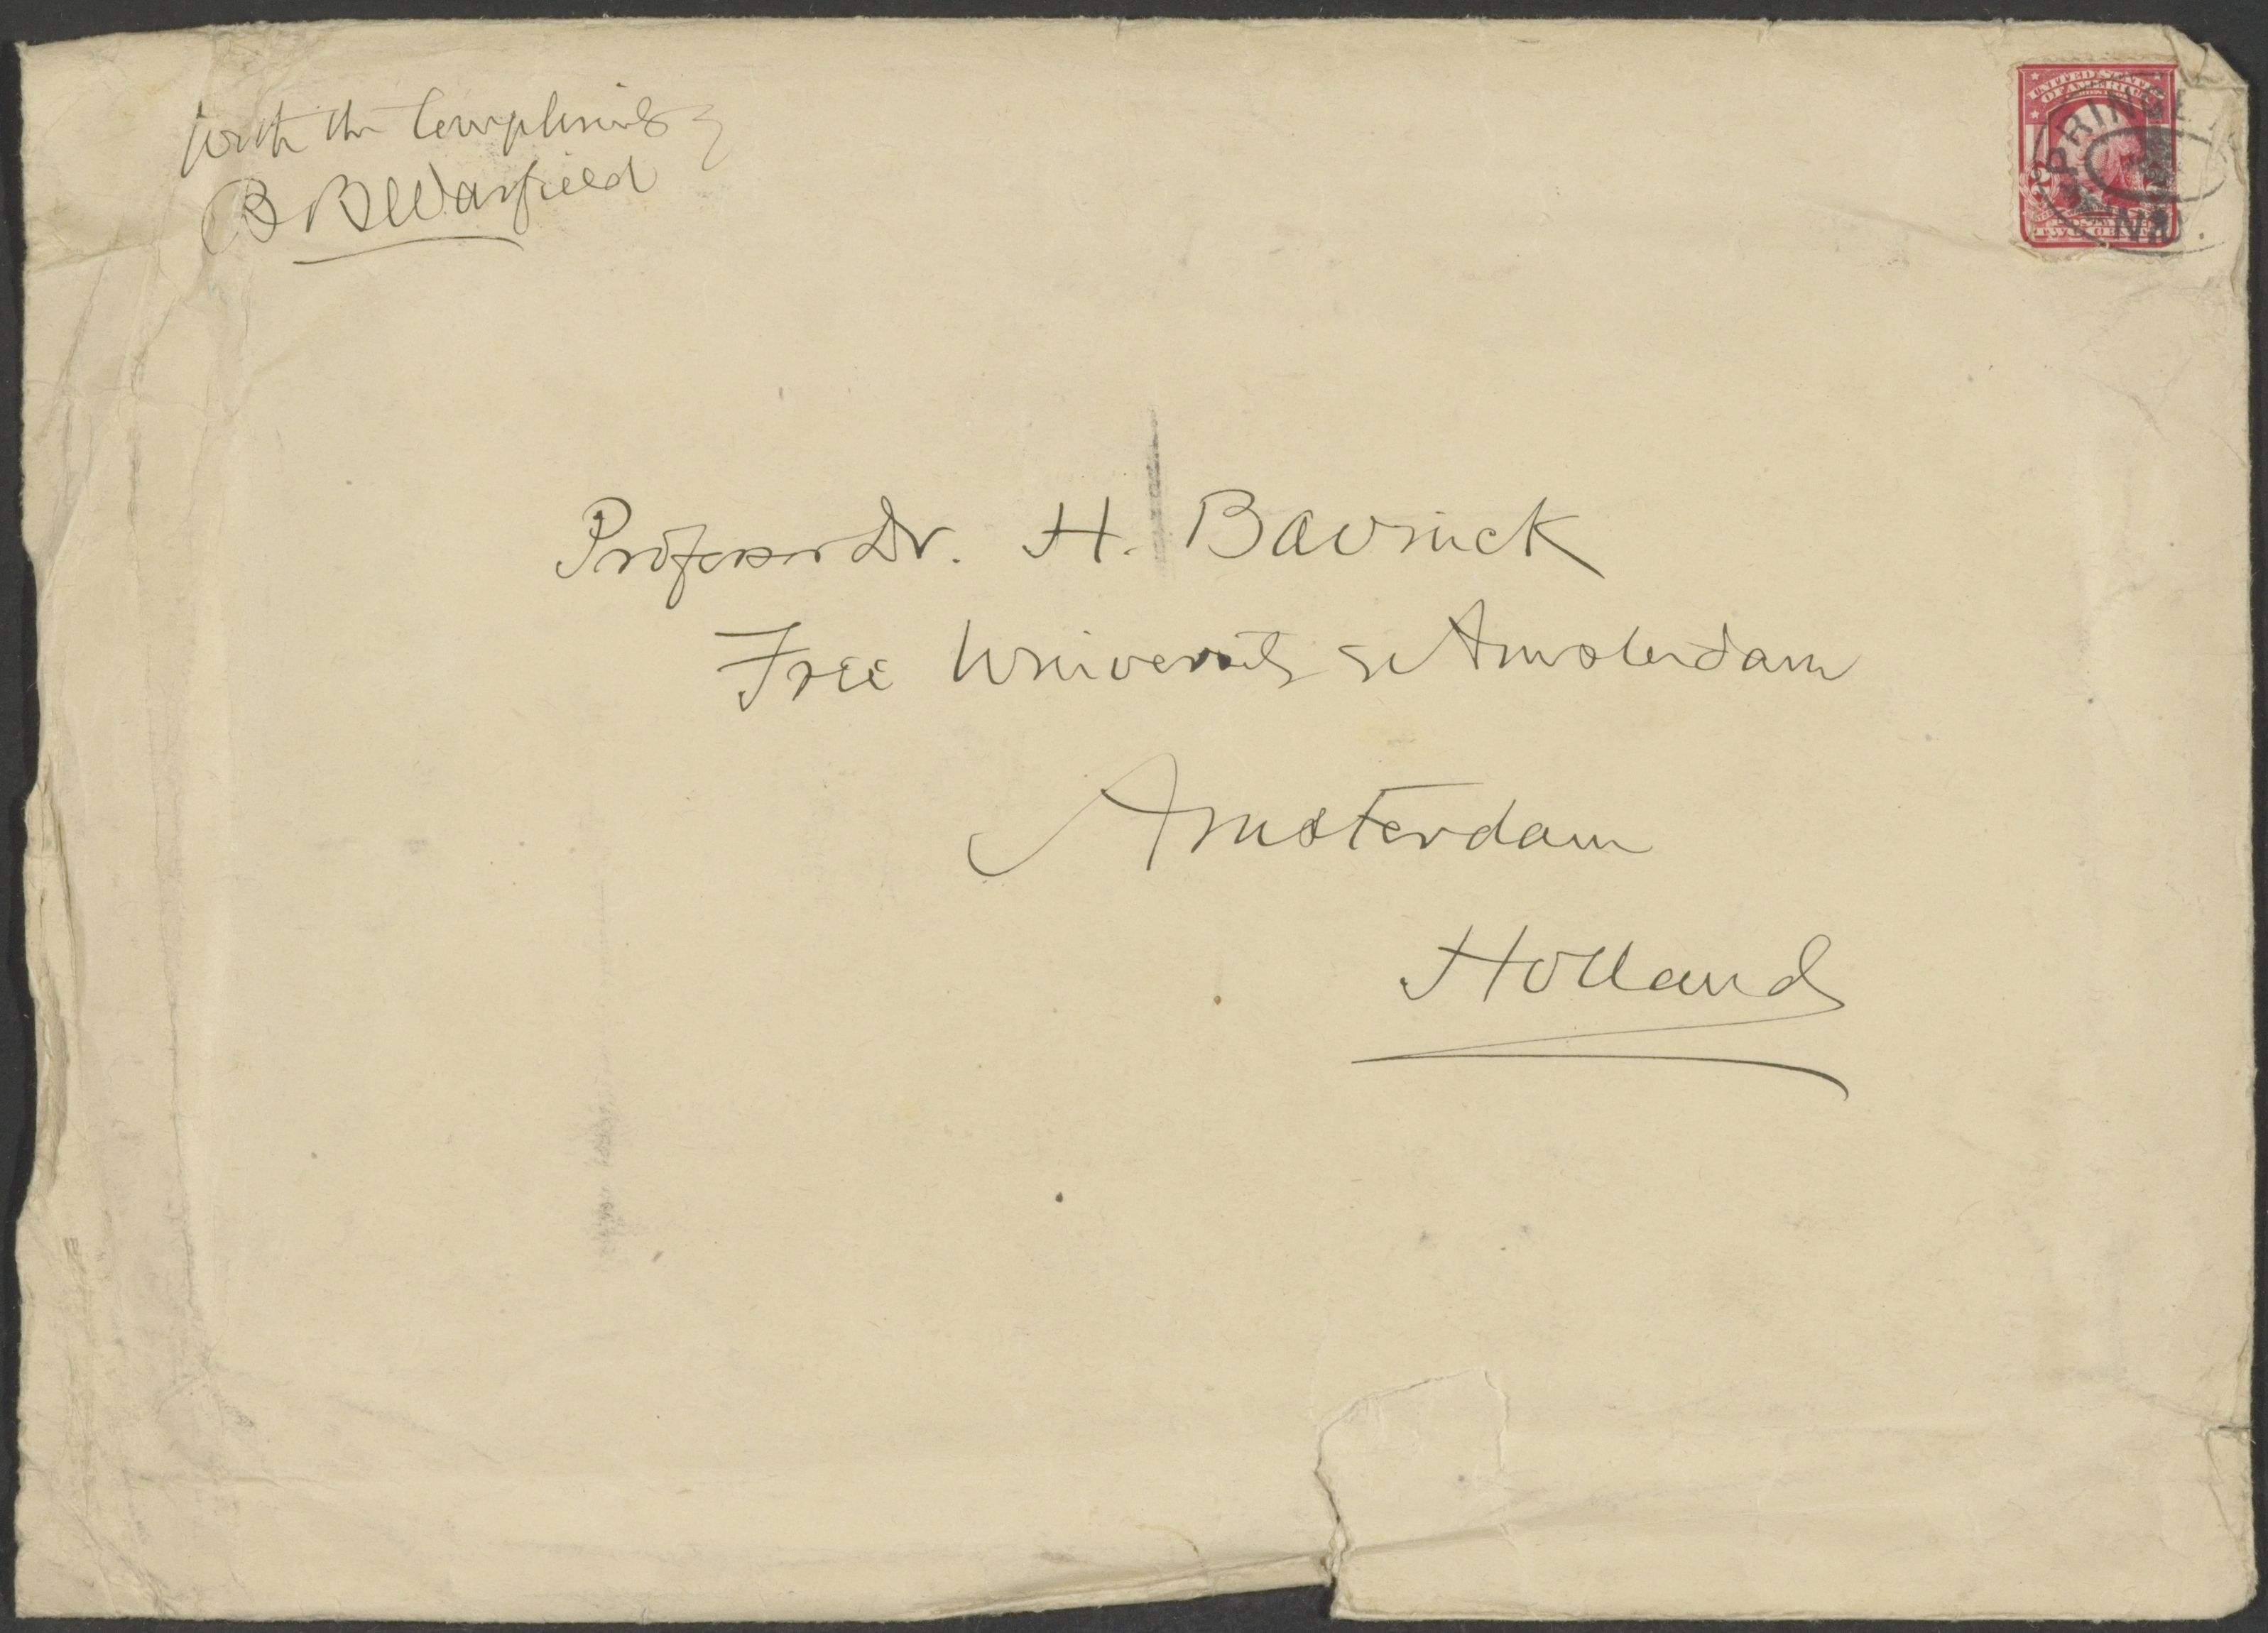 With the Compliments of
B B Warfield
UNITED STATES
OF AMERICA
PRINCET
N.J.
Professor Dr. H. Bavinck
Free University of Amsterdam
Amsterdam
Holland